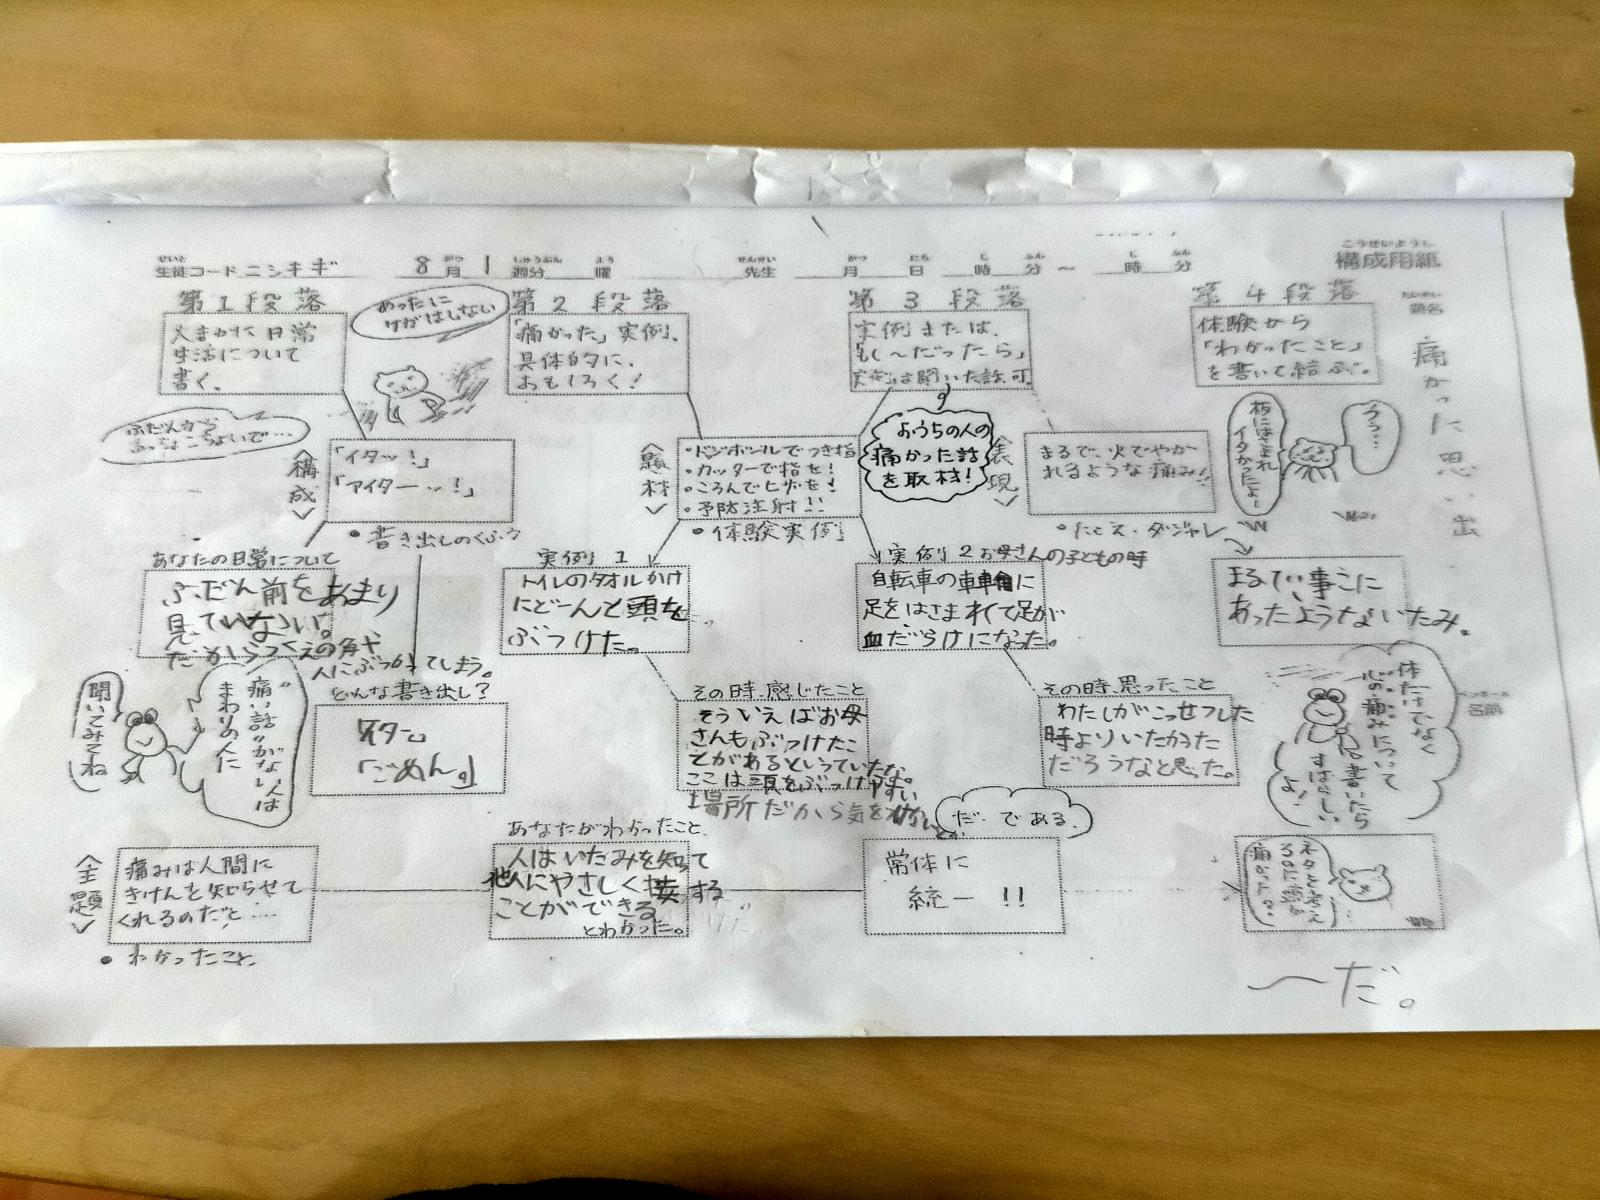 こうせいようし
構成用紙
せいと
生徒コード ニシキギ
がつ
8月
しゅうぶん
1週分
よう
曜
せんせい
先生
がつ
月
にち
日
じ
時
ふん
分 〜
じ
時
ふん
分
だいめい
題名
痛かった思い出
ペンネーム
名前
第1段落
大まかに日常
生活について
書く。
あったに
けがはしない
第2段落
「痛かった」実例。
具体的に、
おもしろく!
第3段落
実例または、
「もし〜だったら」
実例は聞いた話可。
第4段落
体験から
「わかったこと」
を書いて結ぶ。
ふだんから
おっちょこちょいで…
<構成>
「イタッ!」
「アイターッ!」
・書き出しのくふう
<題材>
・ドッジボールでつき指
・カッターで指を!
・ころんでヒザを!
・予防注射!!
・体験実例
おうちの人の
痛かった話
を取材!
<表現>
まるで、火でやか
れるような痛み!!
・たとえ・ダジャレ
板にはさまれ
イタかったよー
うう…
あなたの日常について
ふだん前をあまり
見ていない。
だからつくえの角や
人にぶつかってしまう。
実例1
トイレのタオルかけ
にどーんと頭を
ぶつけた。
実例2 お母さんの子どもの時
自転車の車輪に
足をはさまれて足が
血だらけになった。
まるでい事こに
あったようないたみ。
聞いてみてね
"痛い話"がない人は
まわりの人に
どんな書き出し?
「ごめん。」
その時、感じたこと
そういえばお母
さんもぶつけたこ
とがあるといっていたな。
ここは頭をぶつけやすい
場所だから気を
その時、思ったこと
わたしがこっせつした
時よりいたかった
だろうなと思った。
体だけでなく
心の痛みについて
書いたら
すばらしい
よ!
だ・である。
<主題>
痛みは人間に
きけんを知らせて
くれるのだと……
・わかったこと
あなたがわかったこと
人はいたみを知って
他人にやさしく接する
ことができる
とわかった。
常体に
統一!!
ネタを考え
るのに頭が
痛かった?
〜だ。